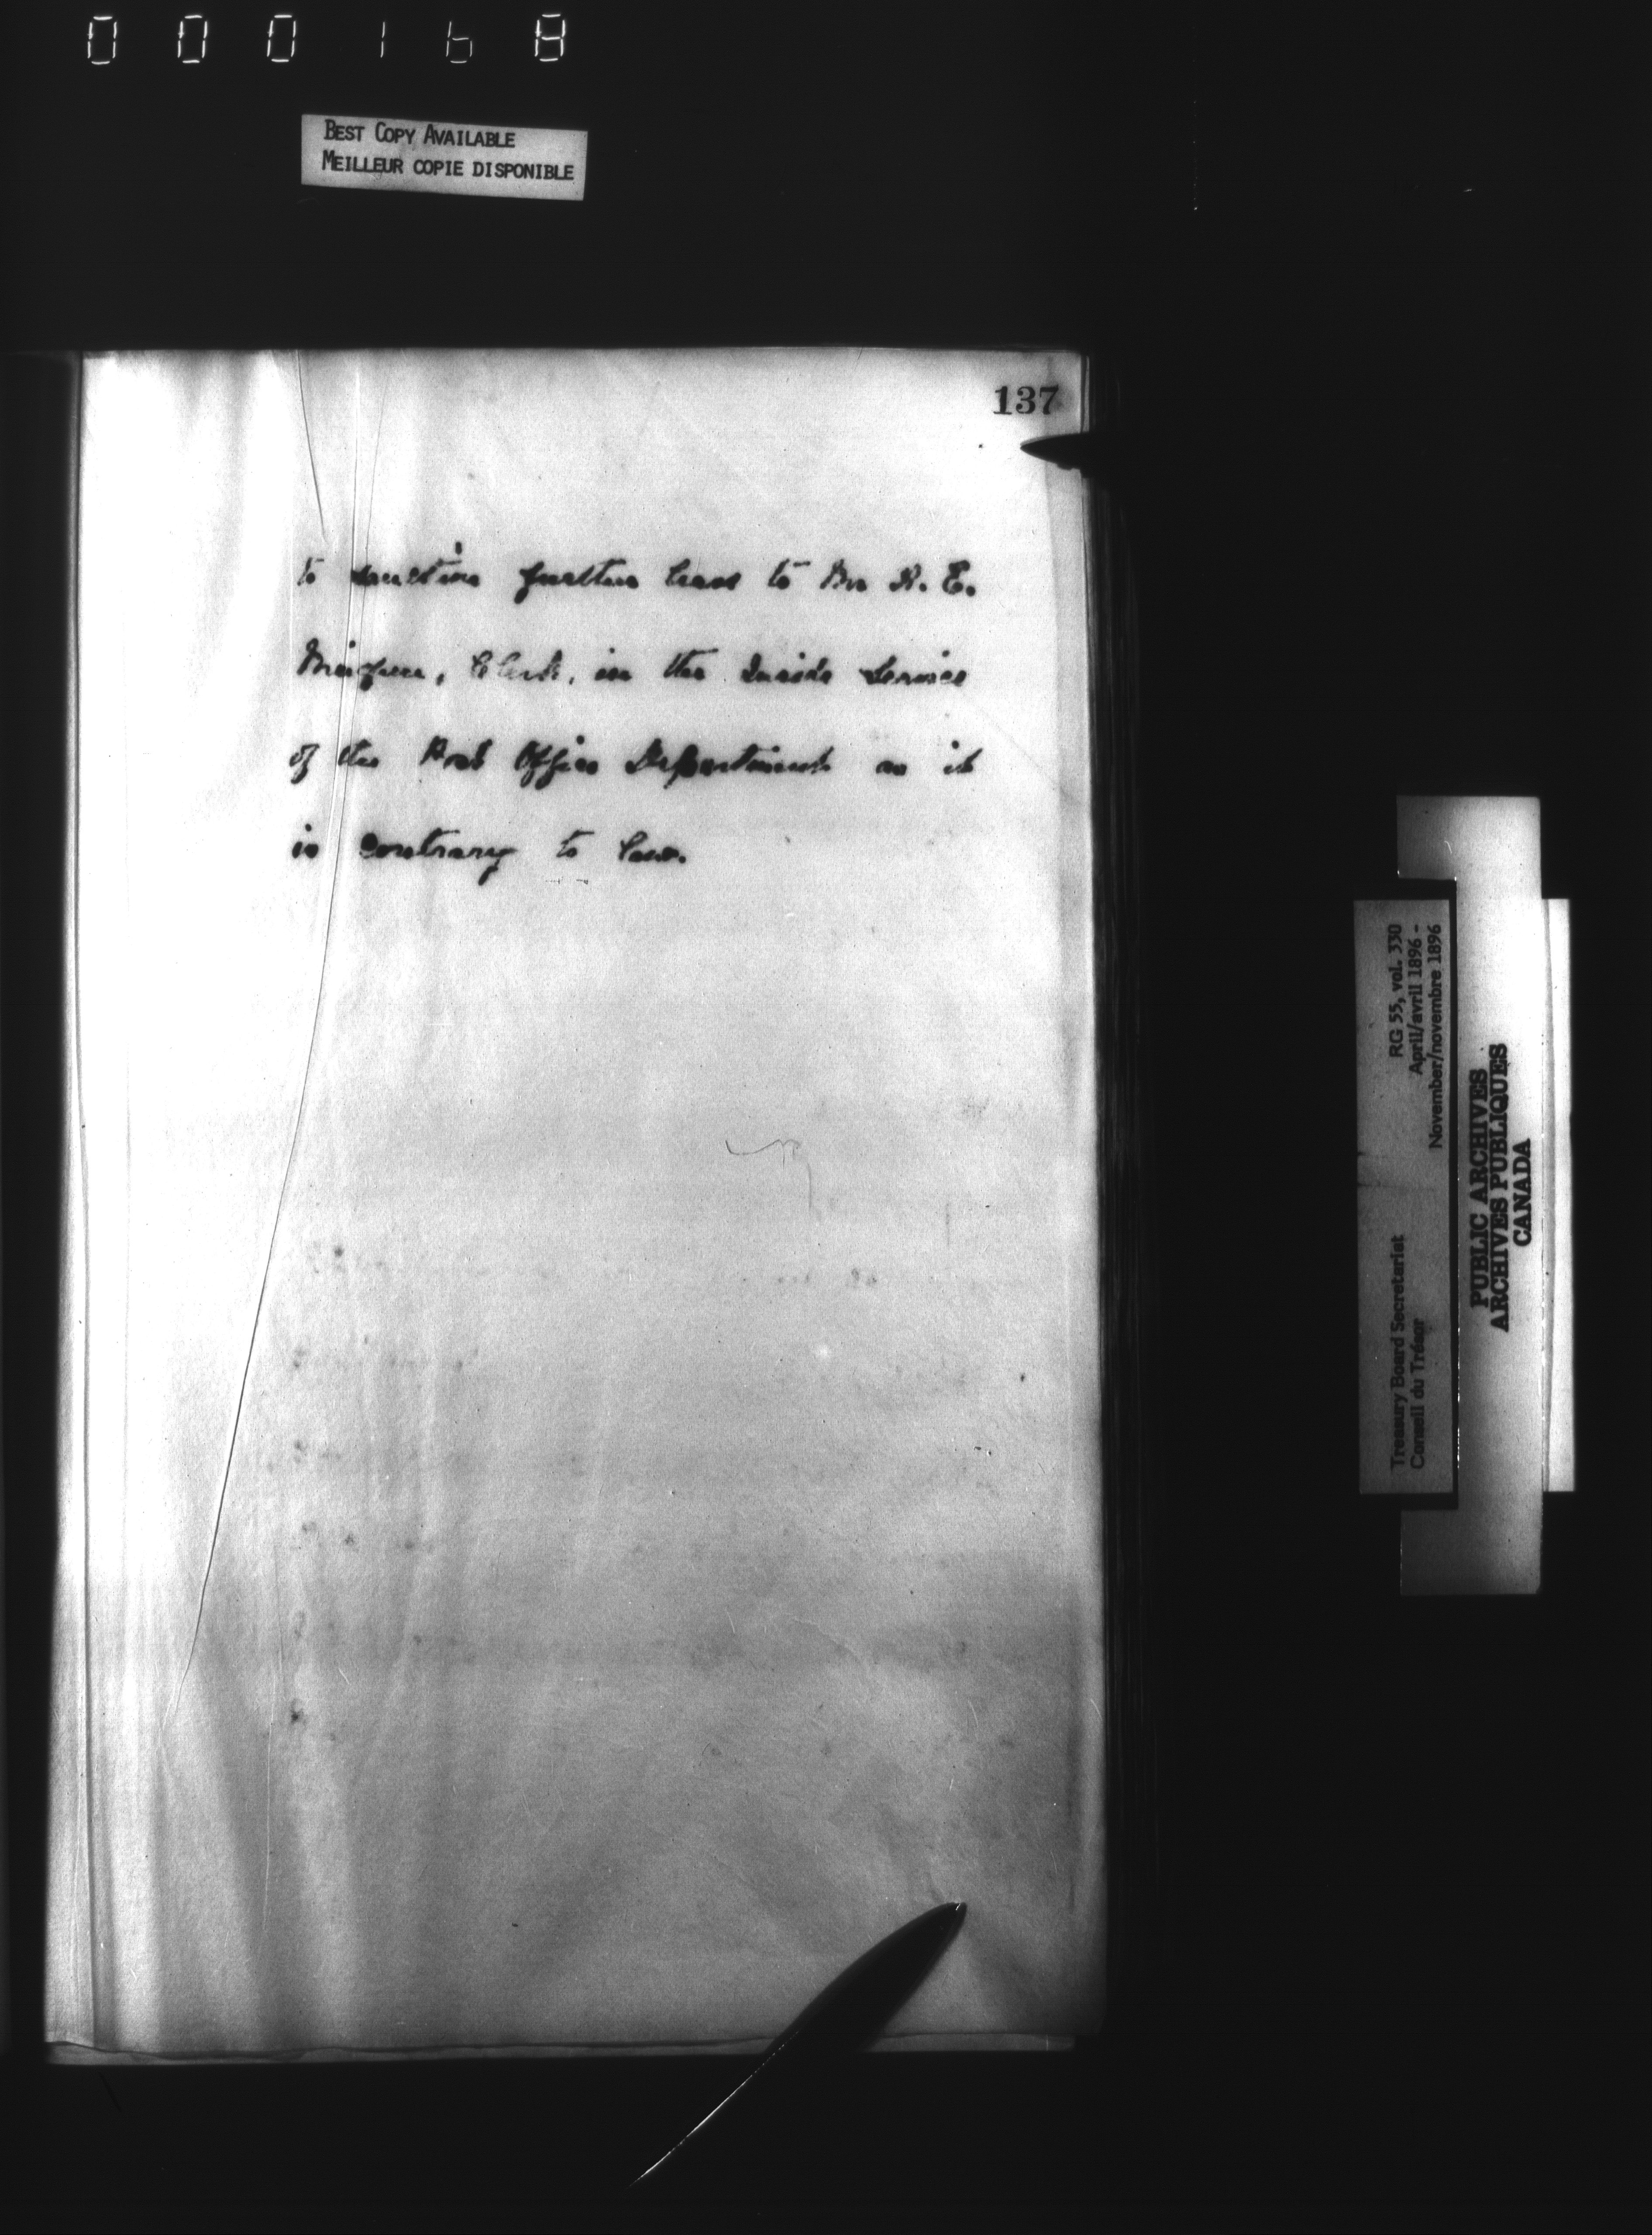 000168
BEST COPY AVAILABLE
MEILLEUR COPIE DISPONIBLE
137
to sanction further leave to Mr R. E.
Clerk, in the Inside Service
of the Post Office Department as it
is contrary to law.
RG 55, vol. 330
April/avril 1896 -
November/novembre 1896
Treasury Board Secretariat
Conseil du Trésor
PUBLIC ARCHIVES
ARCHIVES PUBLIQUES
CANADA